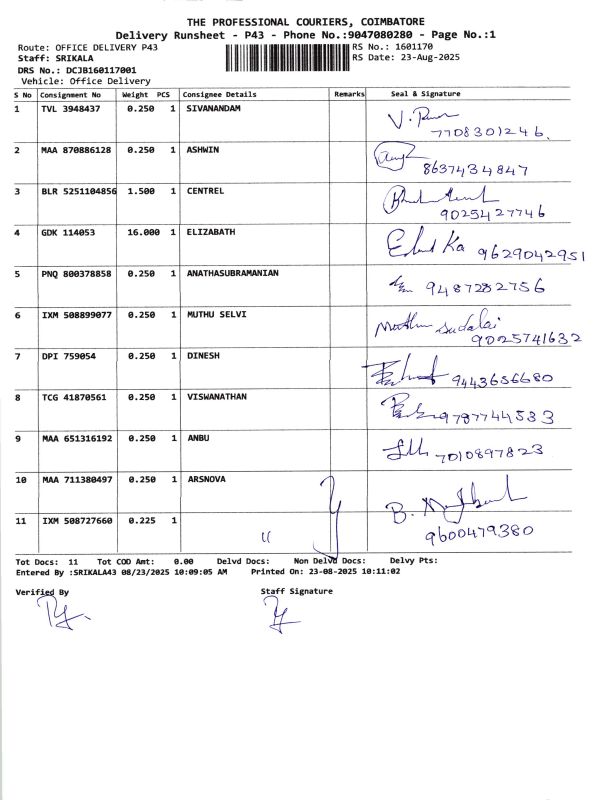 THE PROFESSIONAL COURIERS, COIMBATORE
Delivery Runsheet - P43 - Phone No.:9047080280 - Page No.:1
Route: OFFICE DELIVERY P43 RS No.: 1601170
Staff: SRIKALA RS Date: 23-Aug-2025
DRS No.: DCJB160117001
Vehicle: Office Delivery
S No Consignment No Weight PCS Consignee Details Remarks Seal & Signature
1 TVL 3948437 0.250 1 SIVANANDAM
7708301246.
2 MAA 870886128 0.250 1 ASHWIN
8637434847
3 BLR 5251104856 1.500 1 CENTREL
9025427746
4 GDK 114053 16.000 1 ELIZABATH
9629042951
5 PNQ 800378858 0.250 1 ANATHASUBRAMANIAN
9487282756
6 IXM 508899077 0.250 1 MUTHU SELVI
Muthu Sudalai
9025741632
7 DPI 759054 0.250 1 DINESH
9443656680
8 TCG 41870561 0.250 1 VISWANATHAN
9787744533
9 MAA 651316192 0.250 1 ANBU
7010897823
10 MAA 711380497 0.250 1 ARSNOVA
11 IXM 508727660 0.225 1 "
9600479380
Tot Docs: 11 Tot COD Amt: 0.00 Delvd Docs: Non Delvd Docs: Delvy Pts:
Entered By :SRIKALA43 08/23/2025 10:09:05 AM Printed On: 23-08-2025 10:11:02
Verified By Staff Signature